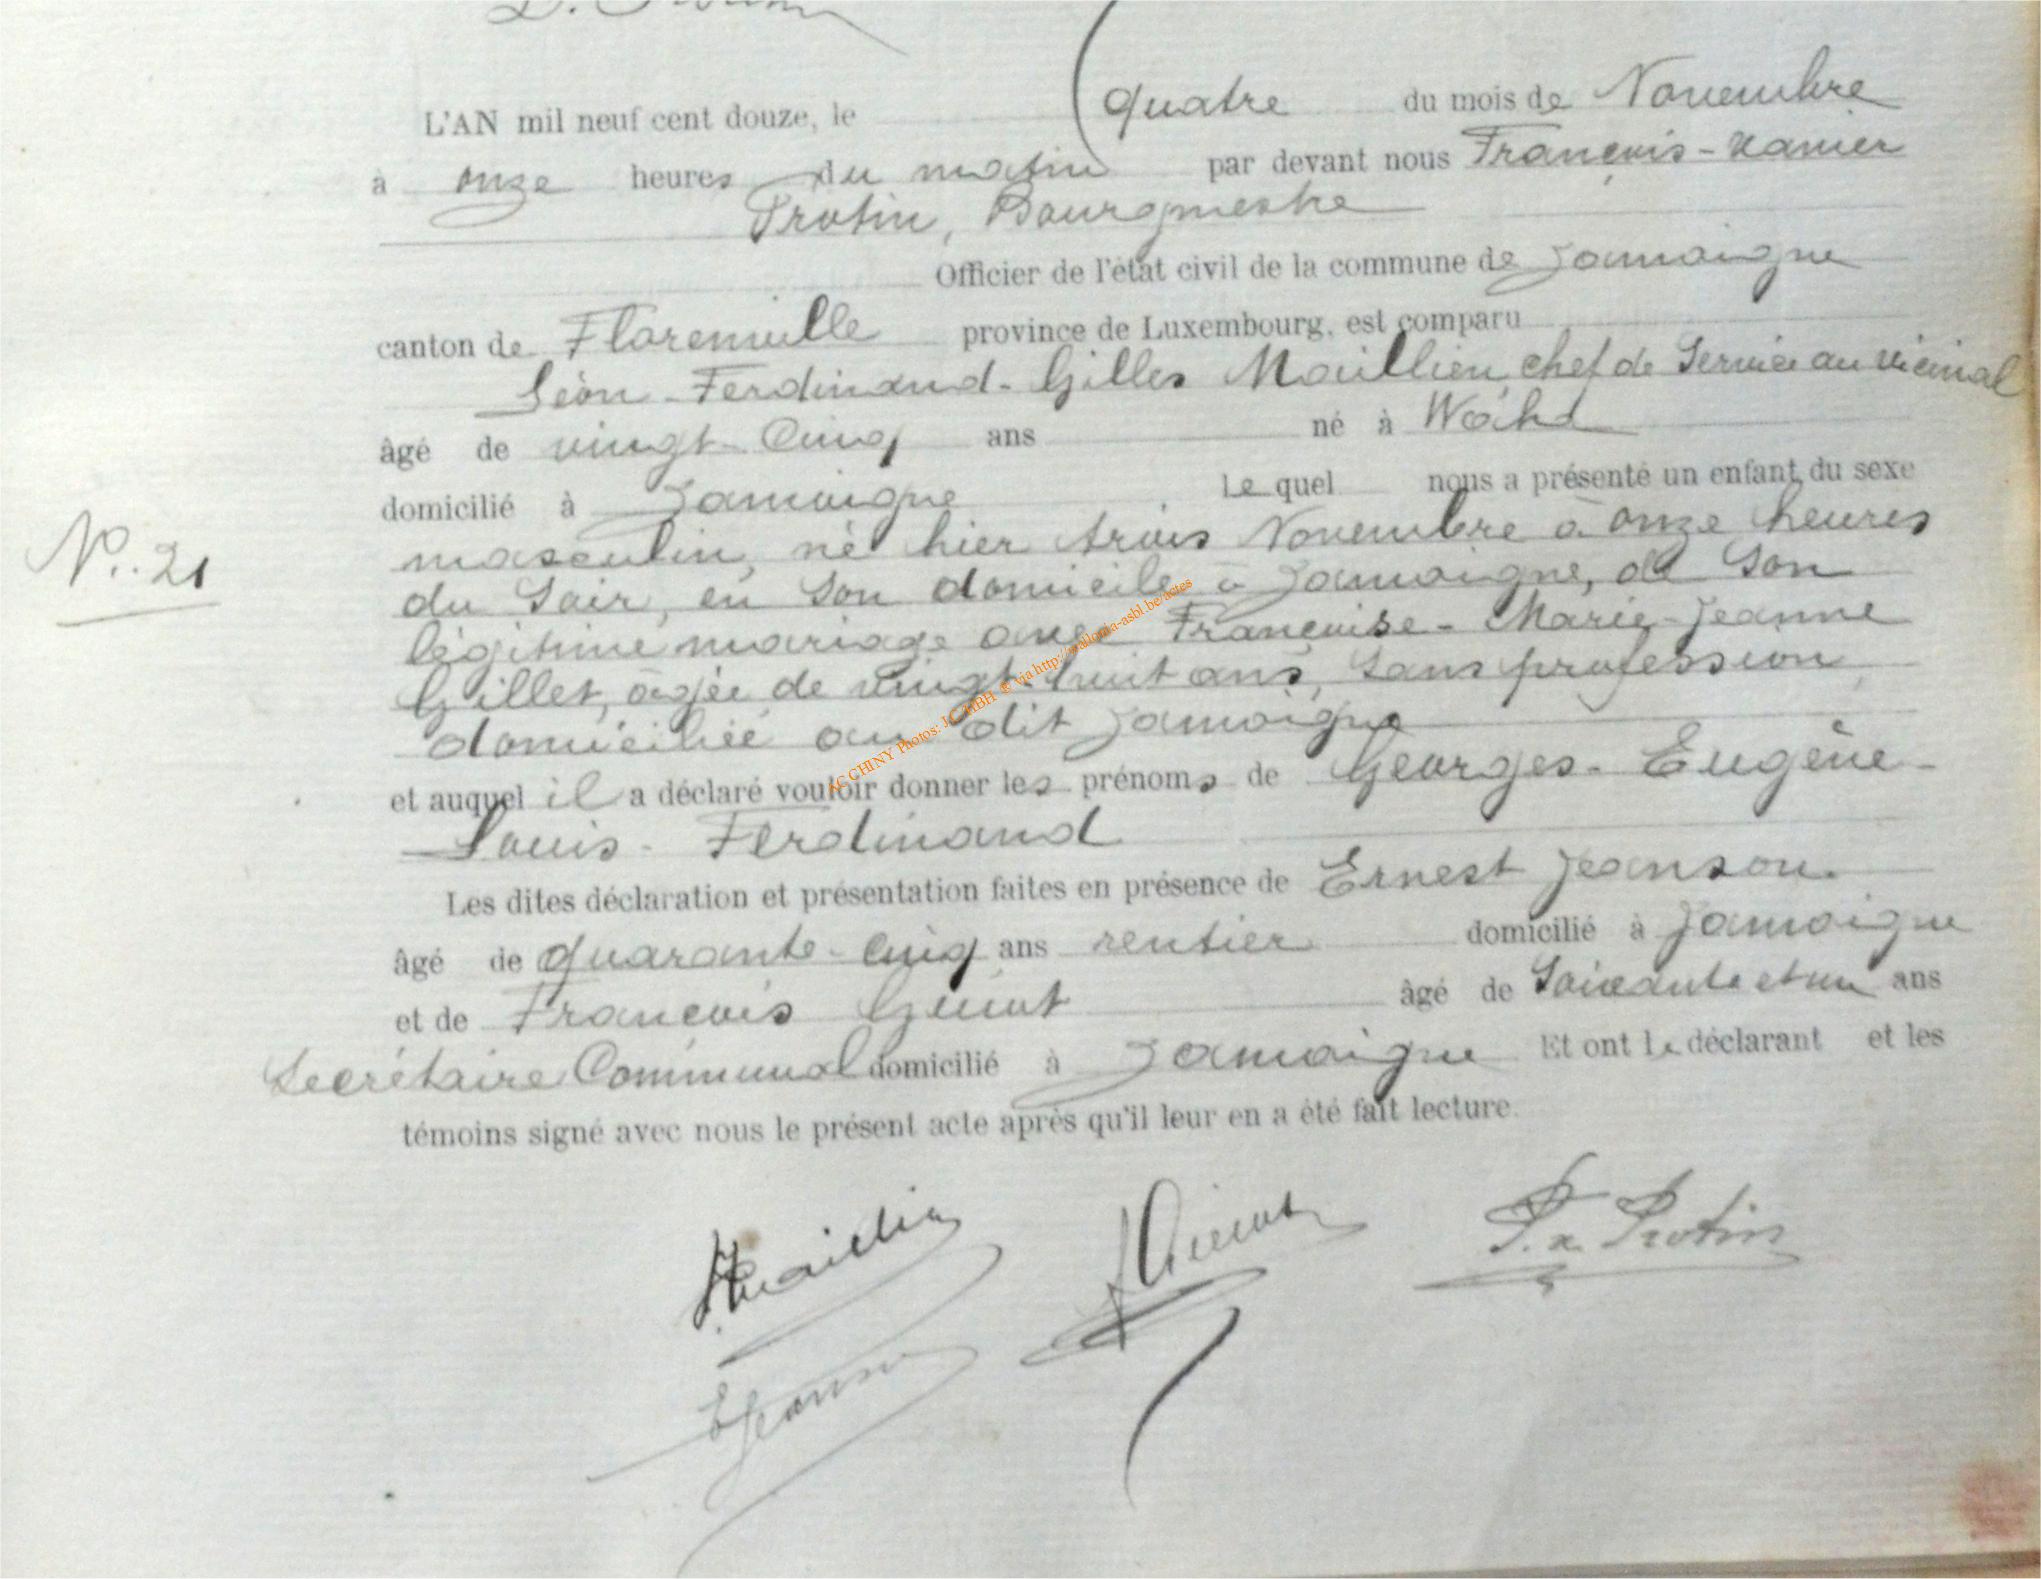 L'AN mil neuf cent douze, le quatre du mois de Novembre
à onze heures du matin par devant nous François-Xavier
Protin, Bourgmestre
Officier de l'état civil de la commune de Jamoigne
canton de Florenville province de Luxembourg, est comparu
Léon-Ferdinand-Gilles Maillien, chef de Service au vicinal
âgé de vingt-Cinq ans né à Waha
domicilié à Jamoigne, lequel nous a présenté un enfant du sexe
N°. 21
masculin, né hier trois Novembre à onze heures
du Soir, en Son domicile à Jamoigne, de Son
légitime mariage avec Françoise-Marie-Jeanne
Gillet, âgée de vingt-huit ans, Sans profession,
domiciliée au dit Jamoigne
et auquel il a déclaré vouloir donner les prénoms de Georges-Eugène-
Louis-Ferdinand
Les dites déclaration et présentation faites en présence de Ernest Jeanson
âgé de quarante-cinq ans rentier domicilié à Jamoigne
et de François Guiot âgé de Soixante et un ans
Secrétaire Communal domicilié à Jamoigne Et ont le déclarant et les
témoins signé avec nous le présent acte après qu'il leur en a été fait lecture.
F. x. Protin
EJeanson
AC CHINY Photos: J.C. HBH ® via http://wallonia-asbl.be/actes